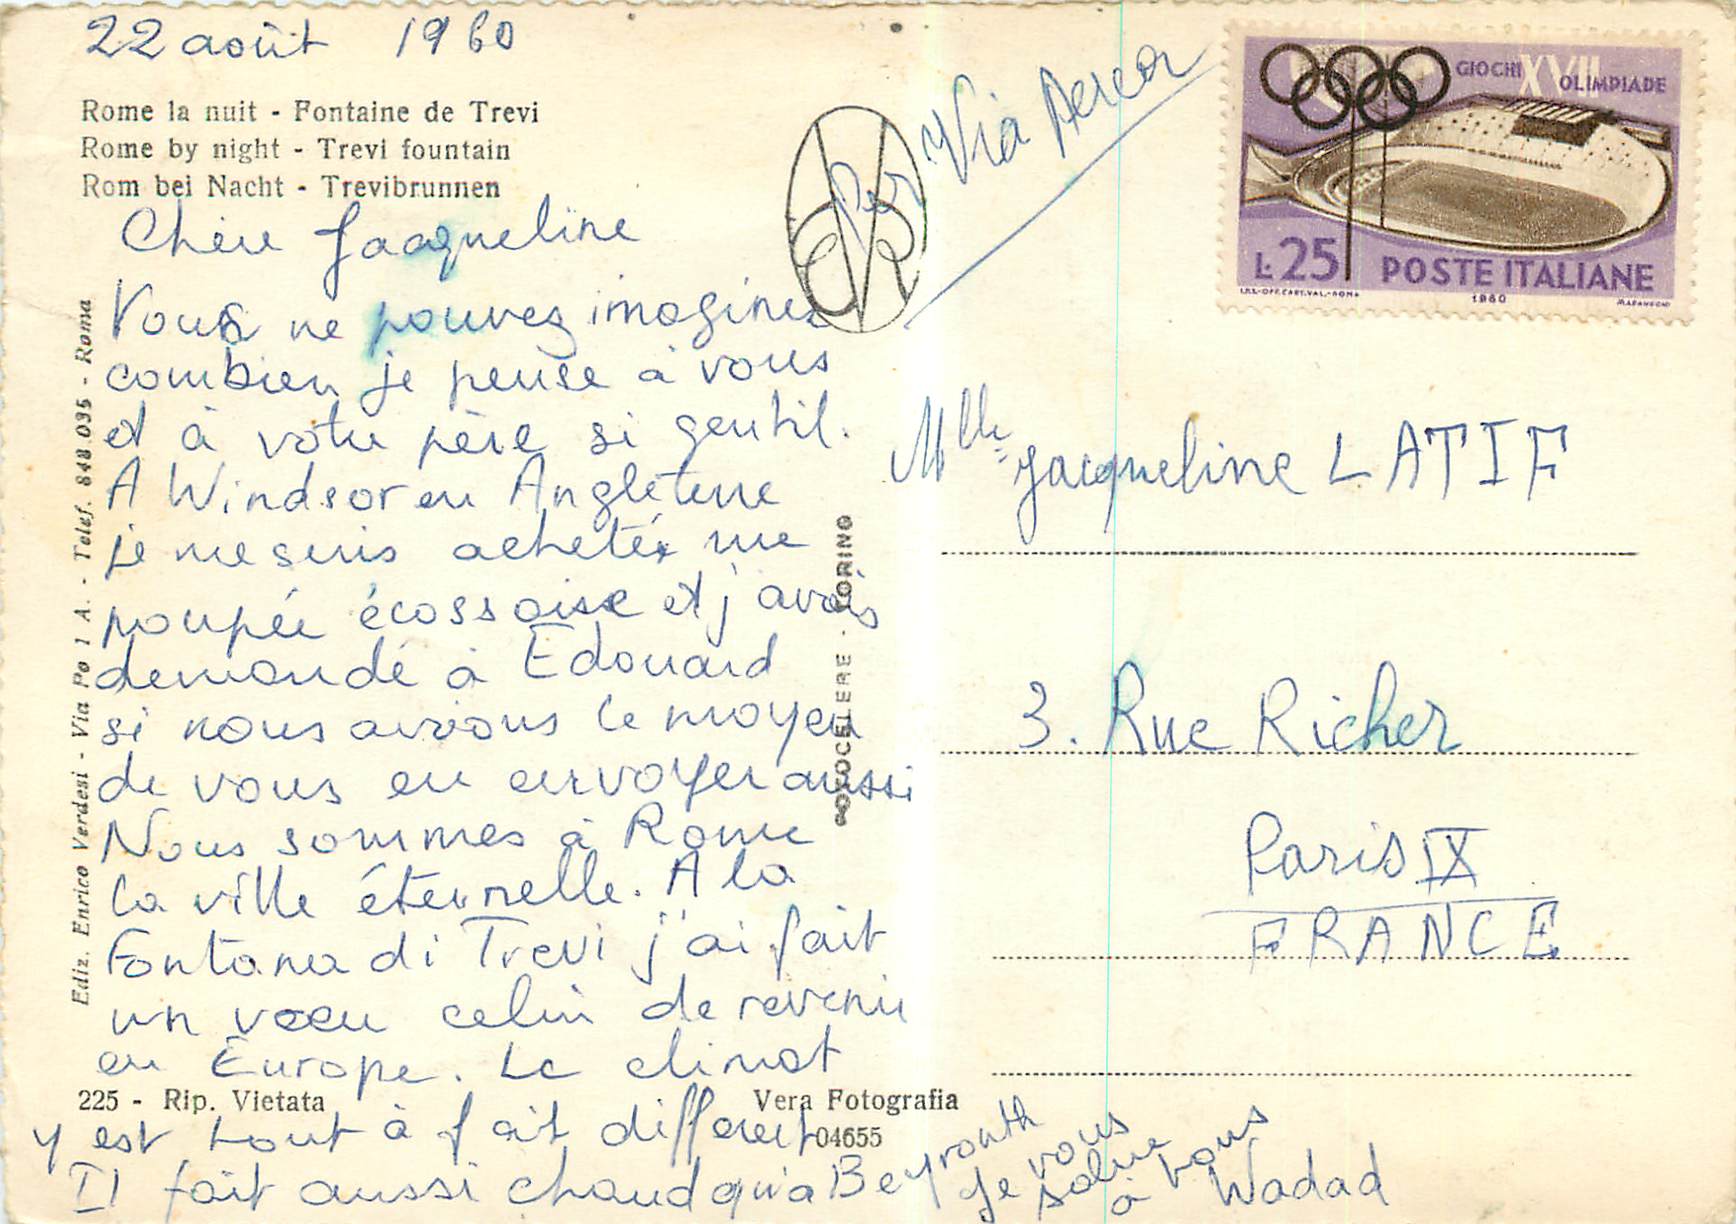 22 août 1960
Rome la nuit - Fontaine de Trevi
Rome by night - Trevi fountain
Rom bei Nacht - Trevibrunnen
Chère Jacqueline
Vous ne pouvez imaginez
combien je pense à vous
et à votre père si gentil.
A Windsor en Angleterre
je me suis achetée une
poupée écossaise et j'avais
demandé à Edouard
si nous avions le moyen
de vous en envoyer aussi
Nous sommes à Rome
la ville éternelle. A la
Fontana di Trevi j'ai fait
un voeu celui de revenir
en Europe. Le climat
y est tout à fait different
Il fait aussi chaud qu'a Beyrouth
Je vous
salue
à vous
Wadad
Ediz. Enrico Verdesi - Via Po 1 A. - Telef. 848.035 - Roma
225 - Rip. Vietata
Vera Fotografia
04655
FOTOCELERE - TORINO
Per Via Aerea
GIOCHI XVII OLIMPIADE
L. 25 POSTE ITALIANE
I.P.S.-OFF.CART.VAL.-ROMA 1960
Mlle Jacqueline LATIF
3. Rue Richer
Paris IX
FRANCE